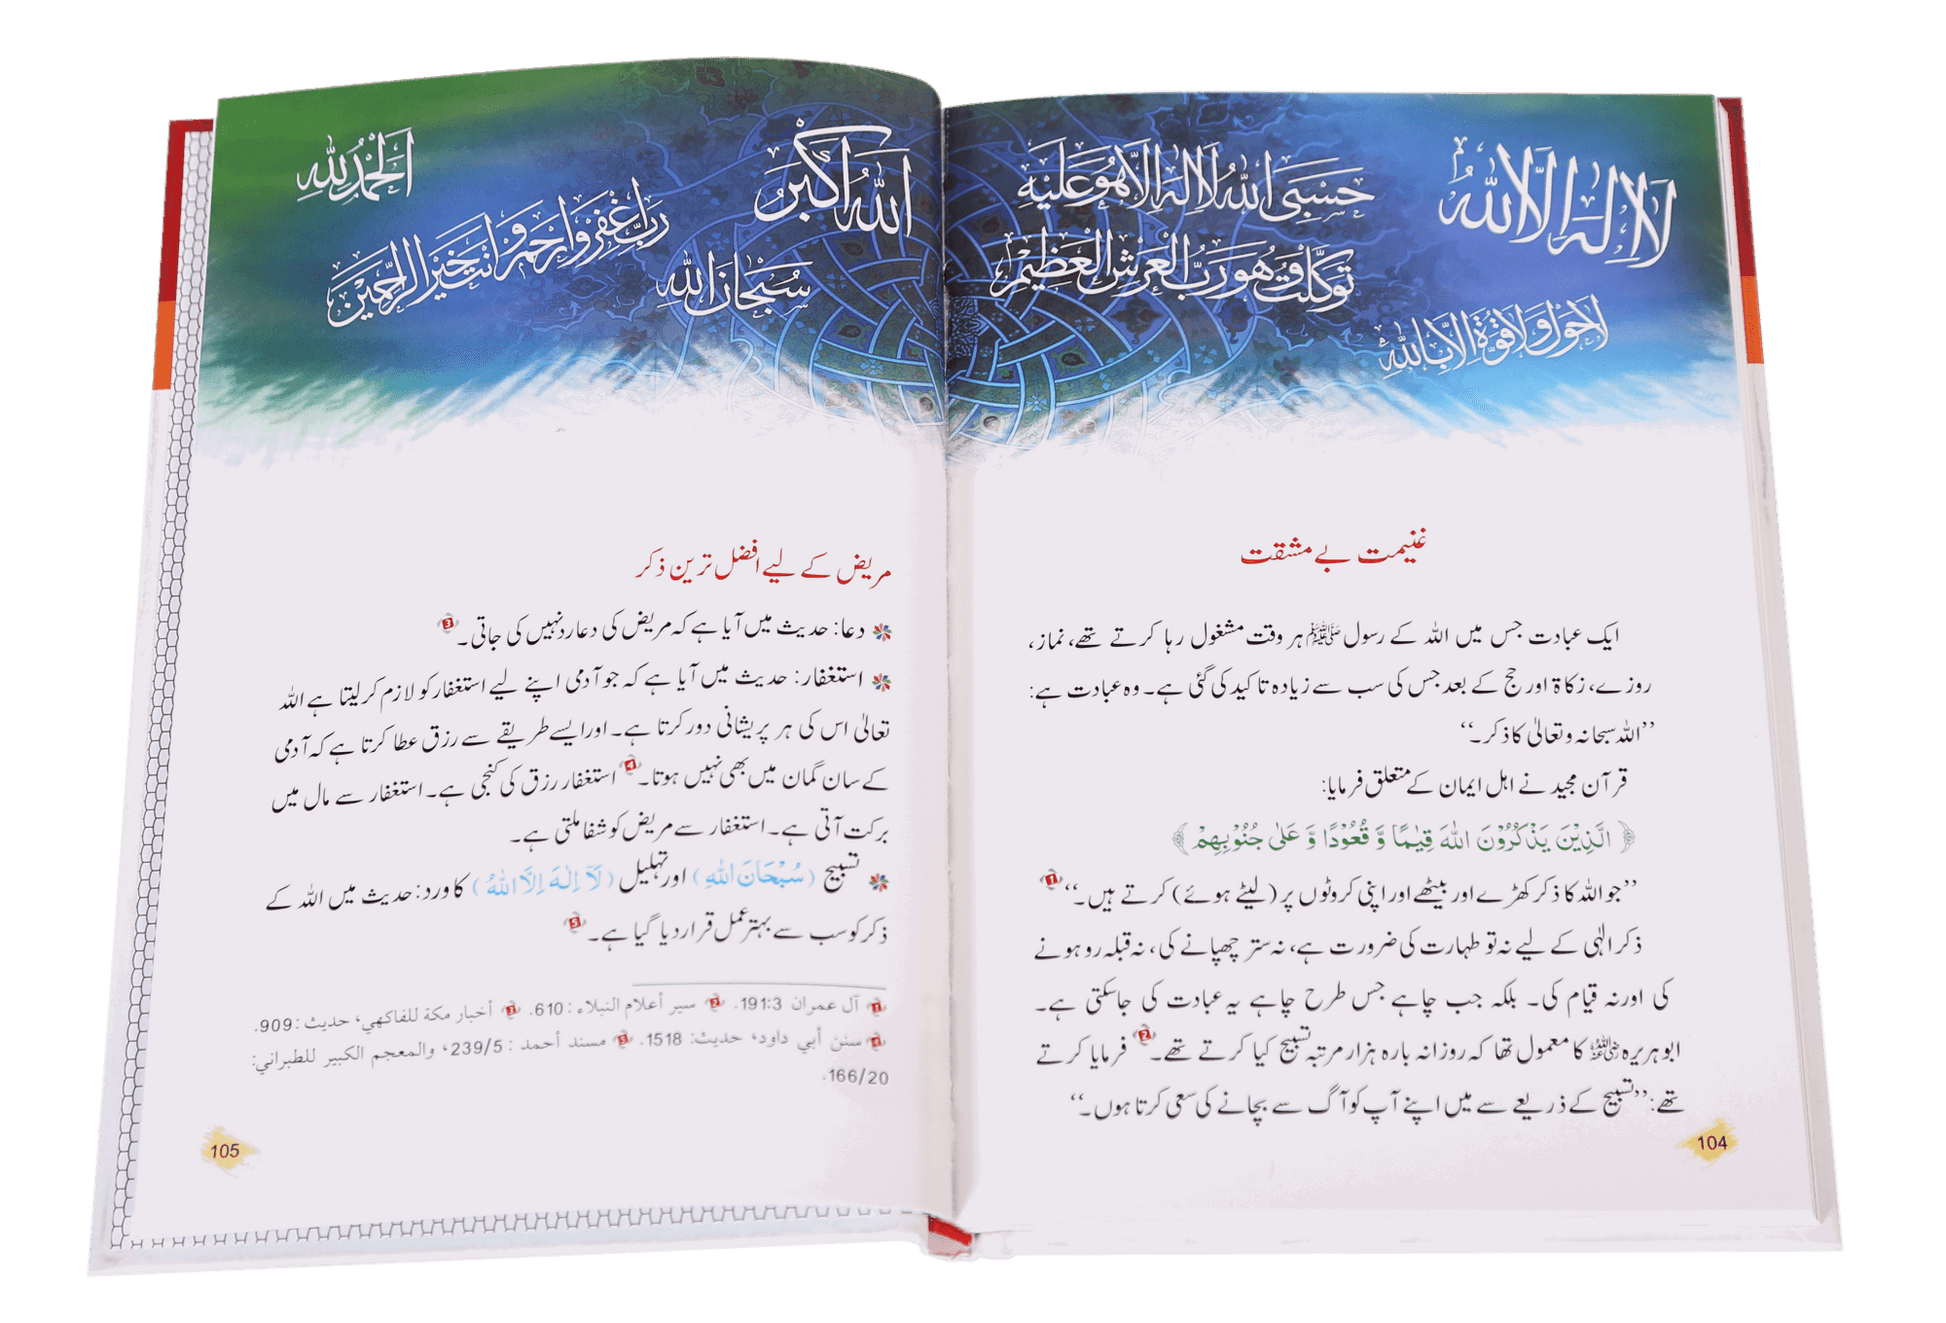 لا إله إلا الله
حسبي الله لا إله إلا هو عليه
توكلت وهو رب العرش العظيم
لا حول ولا قوة إلا بالله
غنیمت بے مشقت
ایک عبادت جس میں اللہ کے رسول ﷺ ہر وقت مشغول رہا کرتے تھے، نماز،
روزے، زکاۃ اور حج کے بعد جس کی سب سے زیادہ تاکید کی گئی ہے۔ وہ عبادت ہے:
’’اللہ سبحانہ وتعالیٰ کا ذکر۔‘‘
قرآن مجید نے اہل ایمان کے متعلق فرمایا:
﴿الَّذِيْنَ يَذْكُرُوْنَ اللّٰهَ قِيٰمًا وَّ قُعُوْدًا وَّ عَلٰى جُنُوْبِهِمْ﴾
’’جو اللہ کا ذکر کھڑے اور بیٹھے اور اپنی کروٹوں پر (لیٹے ہوئے) کرتے ہیں۔‘‘ 1
ذکر الٰہی کے لیے نہ تو طہارت کی ضرورت ہے، نہ ستر چھپانے کی، نہ قبلہ رو ہونے
کی اور نہ قیام کی۔ بلکہ جب چاہے جس طرح چاہے یہ عبادت کی جاسکتی ہے۔
ابو ہریرہ رضی اللہ عنہ کا معمول تھا کہ روزانہ بارہ ہزار مرتبہ تسبیح کیا کرتے تھے۔ 2 فرمایا کرتے
تھے: ’’تسبیح کے ذریعے سے میں اپنے آپ کو آگ سے بچانے کی سعی کرتا ہوں۔‘‘
104
الله أكبر
الحمد لله
رب اغفر وارحم وأنت خير الراحمين
سبحان الله
مریض کے لیے افضل ترین ذکر
دعا: حدیث میں آیا ہے کہ مریض کی دعا رد نہیں کی جاتی۔ 3
استغفار: حدیث میں آیا ہے کہ جو آدمی اپنے لیے استغفار کو لازم کر لیتا ہے اللہ
تعالیٰ اس کی ہر پریشانی دور کرتا ہے۔ اور ایسے طریقے سے رزق عطا کرتا ہے کہ آدمی
کے سان گمان میں بھی نہیں ہوتا۔ 4 استغفار رزق کی کنجی ہے۔ استغفار سے مال میں
برکت آتی ہے۔ استغفار سے مریض کو شفا ملتی ہے۔
تسبیح (سُبْحَانَ اللّٰهِ) اور تہلیل (لَآ اِلٰهَ اِلَّا اللّٰهُ) کا ورد: حدیث میں اللہ کے
ذکر کو سب سے بہتر عمل قرار دیا گیا ہے۔ 5
1 آل عمران 191:3. 2 سير أعلام النبلاء : 610. 3 أخبار مكة للفاكهي، حديث : 909.
4 سنن أبي داود، حديث: 1518. 5 مسند أحمد : 239/5، والمعجم الكبير للطبراني:
166/20.
105